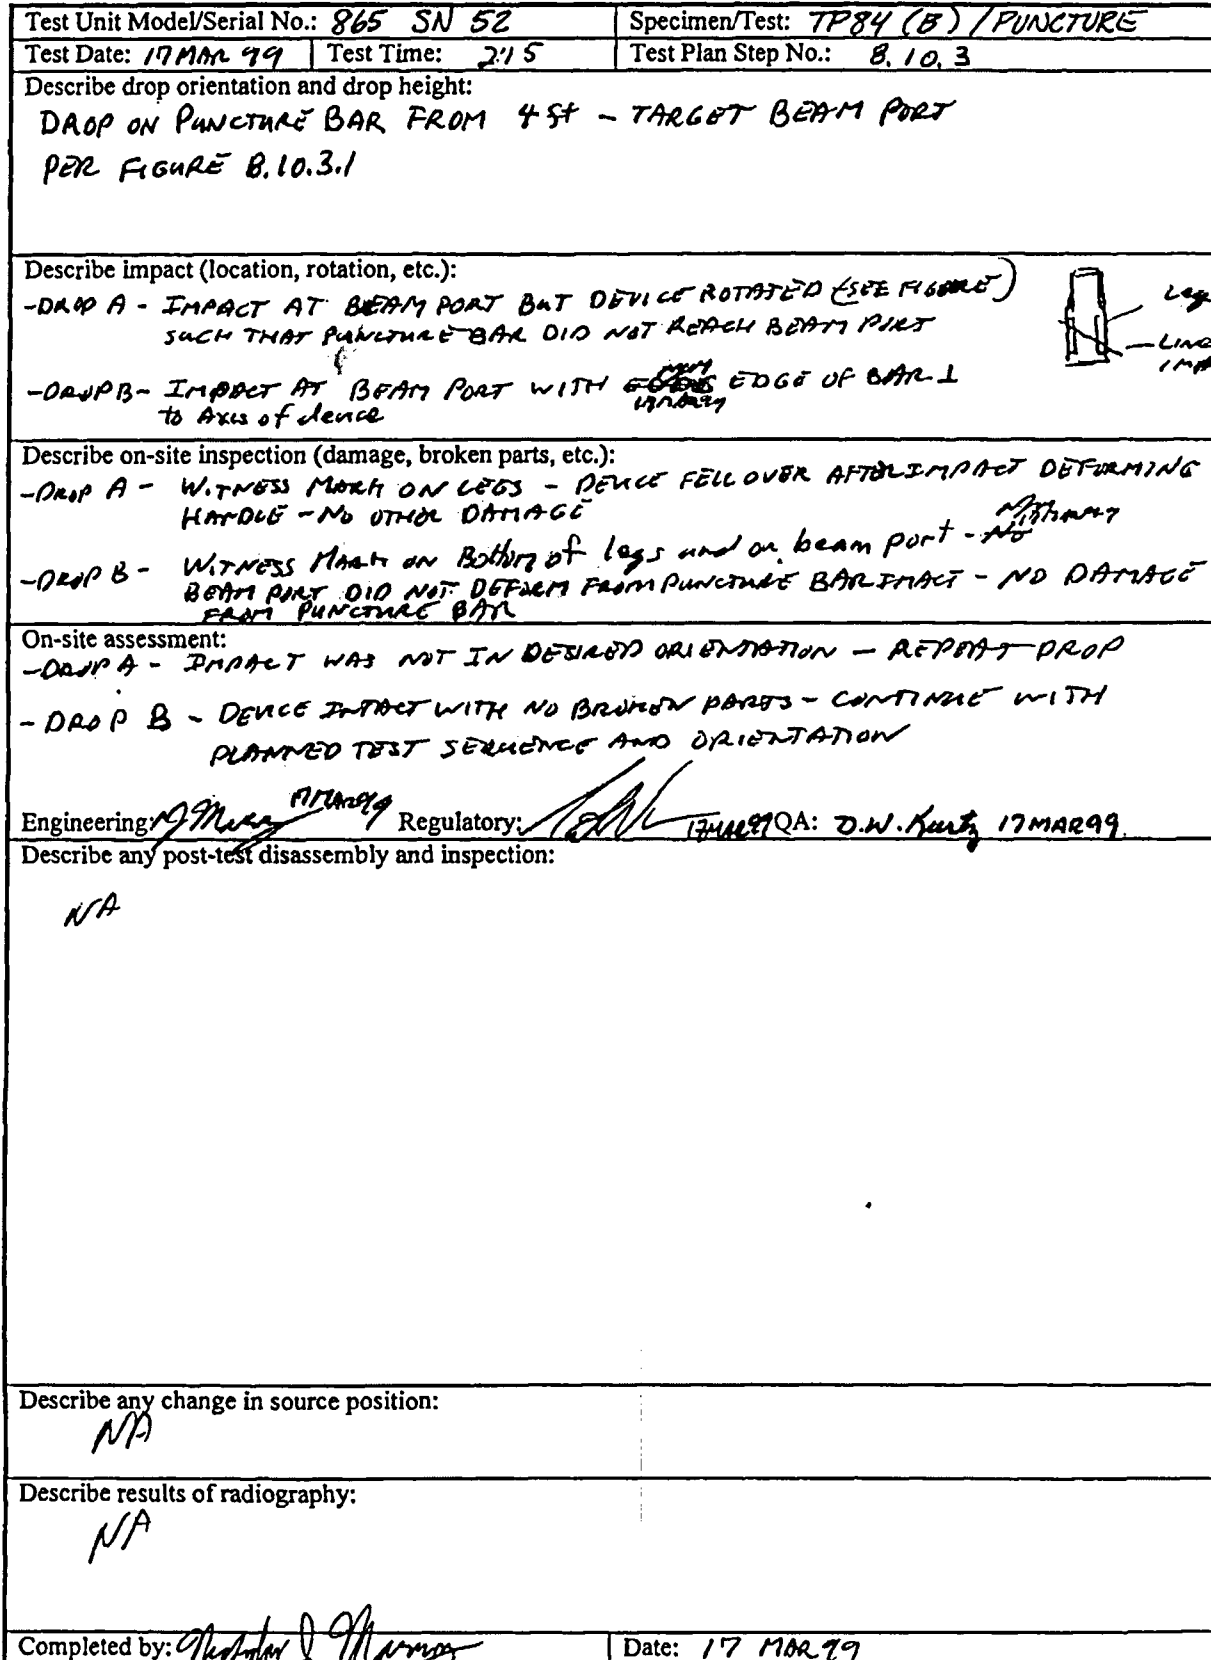 Test Unit Model/Serial No.: 865 SN 52 Specimen/Test: TP84 (B) / PUNCTURE
Test Date: 17 MAR 99 Test Time: 2:15 Test Plan Step No.: 8.10.3
Describe drop orientation and drop height:
DROP ON PUNCTURE BAR FROM 4 ft - TARGET BEAM PORT
PER FIGURE 8.10.3.1
Describe impact (location, rotation, etc.):
-DROP A - IMPACT AT BEAM PORT BUT DEVICE ROTATED (SEE FIGURE)
SUCH THAT PUNCTURE BAR DID NOT REACH BEAM PORT
Leg
LINE
IMPA
-DROP B- IMPACT AT BEAM PORT WITH EDGE OF BAR ⊥
to Axis of device
17MAR99
Describe on-site inspection (damage, broken parts, etc.):
-DROP A - WITNESS MARK ON LEGS - DEVICE FELL OVER AFTER IMPACT DEFORMING
HANDLE - NO OTHER DAMAGE
-DROP B - WITNESS MARK ON Bottom of legs and on beam port - No
BEAM PORT DID NOT DEFORM FROM PUNCTURE BAR IMACT - NO DAMAGE
FROM PUNCTURE BAR
On-site assessment:
-DROP A - IMPACT WAS NOT IN DESIRED ORIENTATION - REPEAT DROP
- DROP B - DEVICE INTACT WITH NO BROKEN PARTS - CONTINUE WITH
PLANNED TEST SEQUENCE AND ORIENTATION
Engineering: 17MAR99 Regulatory: 17MAR99 QA: D.W. Kurtz 17MAR99
Describe any post-test disassembly and inspection:
NA
Describe any change in source position:
NA
Describe results of radiography:
NA
Completed by: Date: 17 MAR 99